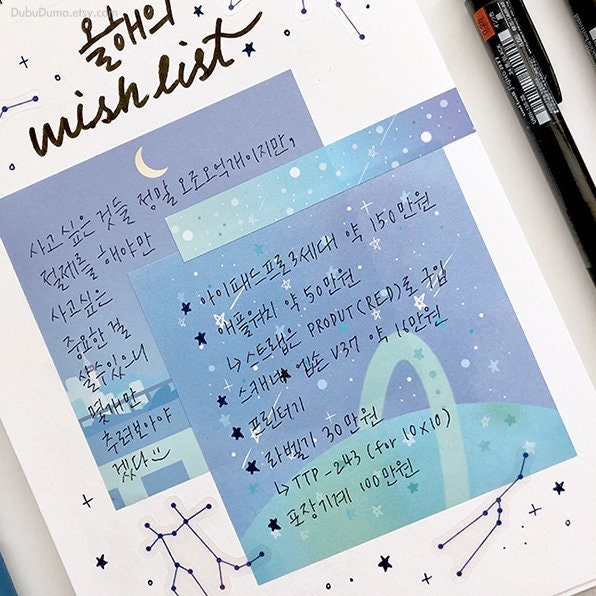 DubuDumo.etsy.com
올해의
wish list
사고싶은 것들 정말 오조오억개이지만,
절제를 해야만
사고싶은
중요한걸
살수있으니
몇개만
추려보아야
겠다
아이패드프로3세대 약 150만원
애플워치 약 50만원
↳ 스트랩은 PRODUT(RED)로 구입
스캐너 엡손 V37 약 16만원
프린터기
라벨기 30만원
↳ TTP-243 (for 10x10)
포장기계 100만원